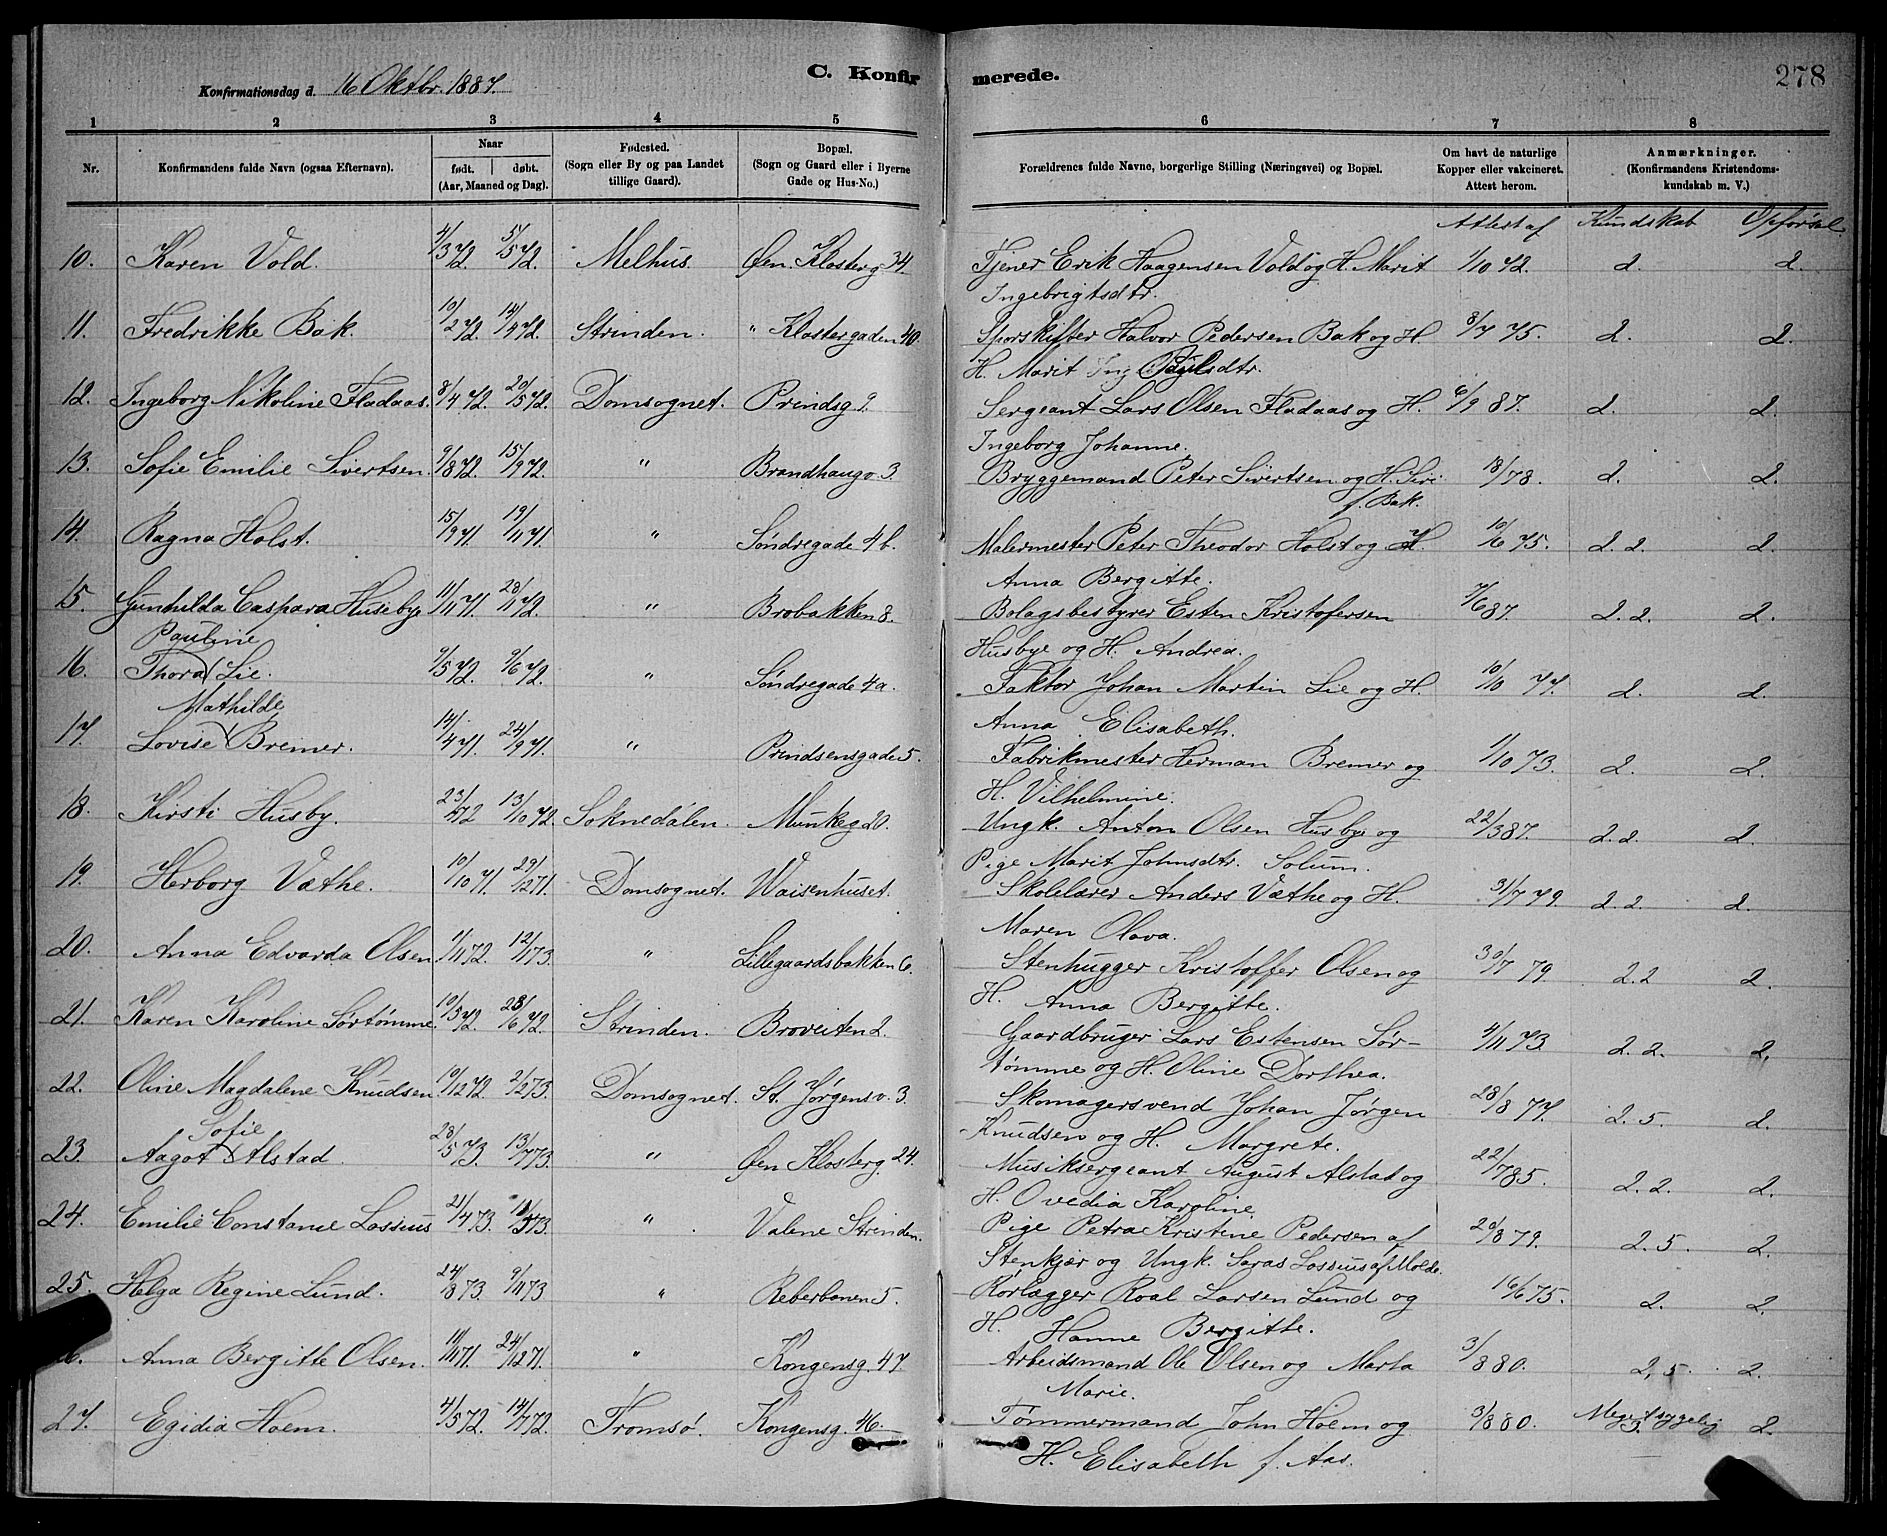 C. Konfirmerede.
278
Konfirmationsdag d. 16 Oktbr. 1887.
1 2 3 4 5 6 7 8
Nr. Konfirmandens fulde Navn (ogsaa Efternavn). Naar født. døbt. (Aar, Maaned og Dag). Fødested. (Sogn eller By og paa Landet tillige Gaard). Bopæl. (Sogn og Gaard eller i Byerne Gade og Hus-No.) Forældrenes fulde Navne, borgerlige Stilling (Næringsvei) og Bopæl. Om havt de naturlige Kopper eller vakcineret. Attest herom. Anmærkninger. (Konfirmandens Kristendomskundskab m. V.)
Attest af Kundskab Opførsel
10. Karen Vold. 4/3 72. 5/5 72. Melhus. Øen. Klosterg 34. Tjener Erik Haagensen Vold og H. Marit 1/10 72. 2. 2.
Ingebrigtsdtr.
11. Fredrikke Bak. 10/2 72. 14/4 72. Strinden. " Klostergaden 40. Sporskifter Halvor Pedersen Bak og H. 8/7 75. 2. 2.
H. Marit Paulsdtr.
12. Ingeborg Nikoline Fladaas. 8/4 72. 20/5 72. Domsognet. Prindsg 9. Sergeant Lars Olsen Fladaas og H. 6/9 87. 2. 2.
Ingeborg Johanne.
13. Sofie Emilie Sivertsen. 9/8 72. 15/9 72. " Brandhaugv. 3. Bryggemand Peter Sivertsen og H. Siri 18/78. 2. 2.
f. Bak.
14. Ragna Holst. 15/9 71. 19/11 71. " Søndregade 4b. Malermester Peter Theodor Holst og H. 10/6 75. 2. 2. 2.
Anna Bergitte.
15. Gunhilda Caspara Huseby 11/11 71. 28/1 72. " Brobakken 8. Bolagsbestyrer Esten Kristofersen 7/6 87. 2. 2. 2.
Husbye og H. Andrea.
Pauline
16. Thora Lie. 9/5 72. 9/6 72. " Søndregade 4a. Faktor Johan Martin Lie og H. 10/10 77. 2. 2.
Anna Elisabeth.
Mathilde
17. Lovise Bremer. 14/4 71. 24/9 71. " Prindsensgade 5. Fabrikmester Herman Bremer og 1/10 73. 2. 2.
H. Vilhelmine.
18. Kirsti Husby. 23/4 72 13/10 72. Soknedalen. Munkeg 20. Ungk. Anton Olsen Husbye og 22/3 87. 2. 2. 2.
Pige Marit Johnsdtr. Solum.
19. Herborg Væthe. 10/10 71. 29/12 71. Domsognet. Waisenhuset. Skolelærer Anders Væthe og H. 31/7 79. 2. 2. 2.
Maren Olava.
20. Anna Edvarda Olsen 1/11 72. 12/1 73. " Lillegaardsbakken 6. Stenhugger Kristoffer Olsen og 30/7 79. 2. 2 2.
H. Anna Bergitte.
21. Karen Karoline Sørtømme. 10/5 72. 28/6 72. Strinden. Broveiten 2. Gaardbruger Lars Estensen Sør- 4/11 73. 2. 2. 2.
tømme og H. Oline Dorthea.
22. Oline Magdalene Knudsen. 10/12 72. 2/2 73. Domsognet. St. Jørgensv. 3. Skomagersvend Johan Jørgen 28/8 77. 2. 5. 2.
Knudsen og H. Margrete.
Sofie
23. Aagot Alstad. 28/5 73. 13/7 73. " Øen Klosterg. 24. Musiksergeant August Alstad og 22/7 85. 2. 2. 2.
H. Ovedia Karoline
24. Emilie Constance Lossius 21/4 73. 73. " Valene Strinden. Pige Petra Kristine Pedersen af 20/8 79. 2. 5. 2.
Stenkjær og Ungk. Saras Lossius af Molde.
25. Helga Regine Lund. 24/8 73. 9/11 73 " Reberbanen 5. Rørlægger Roal Larsen Lund og 16/6 75. 2. 2.
H. Hanne Bergitte.
26. Anna Bergitte Olsen. 11/11 71. 24/12 71. " Kongensg. 47. Arbeidsmand Ole Olsen og Marta 3/8 80. 2, 5. 2.
Marie.
27. Egidia Hoem. 4/5 72. 14/7 72. Tromsø. Kongensg. 46. Tømmermand John Hoem og 3/8 80. Meget sygelig 3. 2.
H. Elisabeth f. Aas.